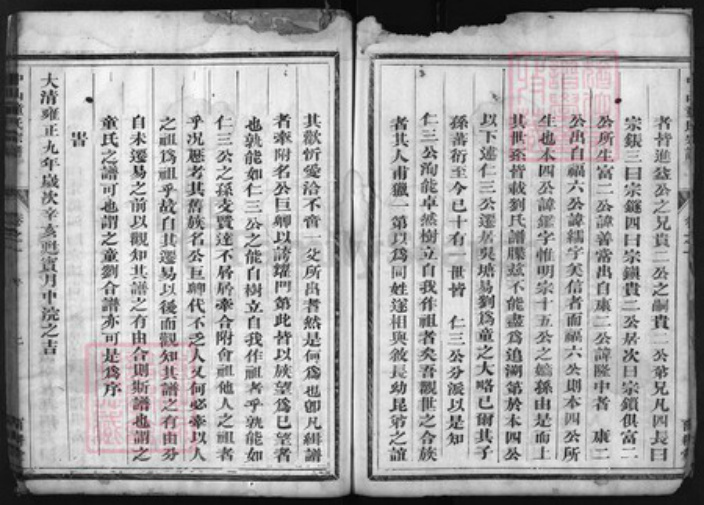 者皆進益公之兄貴二公之嗣貴一公弟兄凡四長曰
宗鋠三曰宗鐩四曰宗鎮貴二公居次曰宗鎖俱富二
公所生富二公諱善當出自康二公諱隆中者 康二
公出自福六公諱繻字美信者而福六公則本四公所
生也本四公諱鑑字惟明宗十五公之嫡孫由是而上
其世系皆載劉氏譜牒茲不能盡爲追溯第於本四公
以下述仁三公遷居吳塘易劉爲童之大略已爾其子
孫蕃衍至今已十有一世皆 仁三公分派以是知
仁三公洵能卓然樹立自我作祖者矣吾觀世之合族
者其人甫獵一第以爲同姓遂相與敘長幼昆弟之誼
其歡忻愛洽不啻一父所出者然是何爲也卽凡緝譜
者牽附名公巨卿以誇耀門第此皆以族望爲已望者
也孰能如仁三公之能自樹立自我作祖者乎孰能如
仁三公之孫支賢達不屑屑牽合附會祖他人之祖者
乎况歷考其舊族名公巨卿代不乏人又何必牽以人
之祖爲祖乎故自其遷易以後而觀知其譜之有由分
自未遷易之前以觀知其譜之有由合則斯譜也謂之
童氏之譜可也謂之童劉合譜亦可是爲序
旹
大清雍正九年歲次辛亥蕤賓月中浣之吉